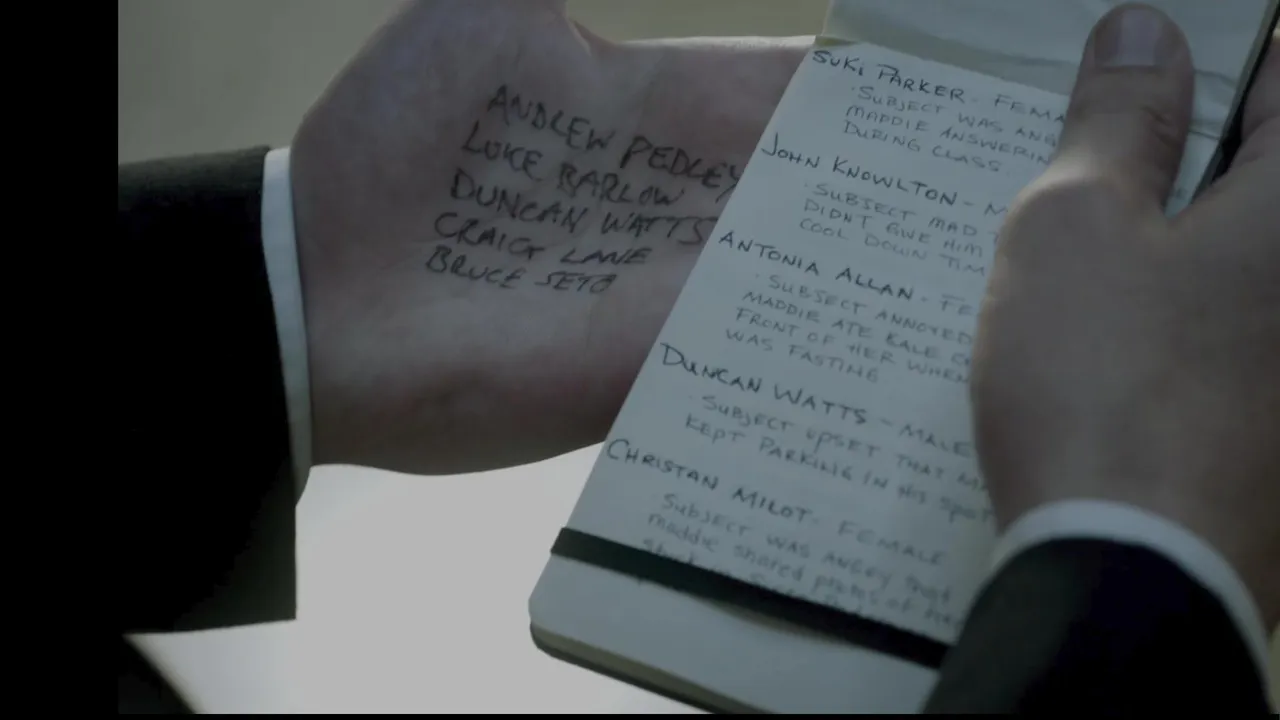 ANDLEW PEDLEY
LUKE BARLOW
DUNCAN WATTS
CRAIG LANE
BRUCE SETO
SUKI PARKER - FEMA
· SUBJECT WAS ANG
MADDIE ANSWERIN
DURING CLASS
JOHN KNOWLTON - M
· SUBJECT MAD
DIDNT GIVE HIM
COOL DOWN TIM
ANTONIA ALLAN - FE
· SUBJECT ANNOYED
MADDIE ATE KALE C
FRONT OF HER WHEN
WAS FASTING
DUNCAN WATTS - MALE
· SUBJECT UPSET THAT M
KEPT PARKING IN HIS SPOT
CHRISTAN MILOT - FEMALE
SUBJECT WAS ANGRY that
maddie shared photos of